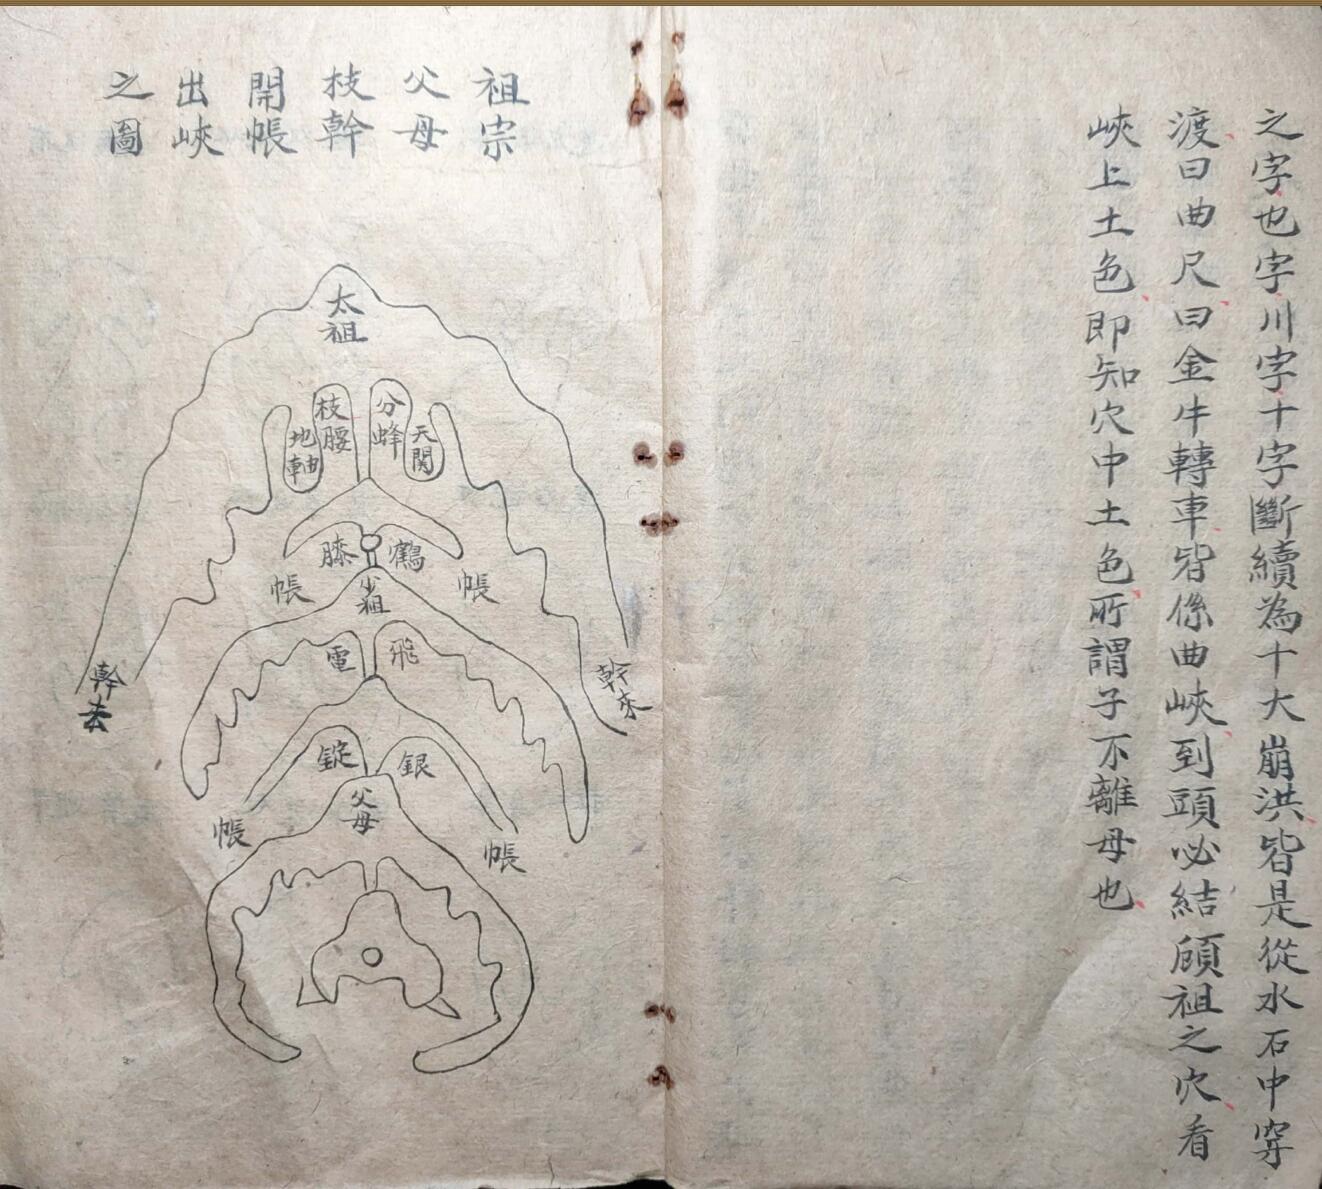 之字也字川字十字斷續為十大崩洪皆是從水石中穿
渡曰曲尺曰金牛轉車皆係曲峽到頭必結顧祖之穴看
峽上土色即知穴中土色所謂子不離母也
祖宗
父母
枝幹
開帳
出峽
之圖
太祖
分蜂
枝腰
天関
地軸
鶴
膝
帳
帳
少祖
幹來
幹去
飛
電
銀
錠
父母
帳
帳